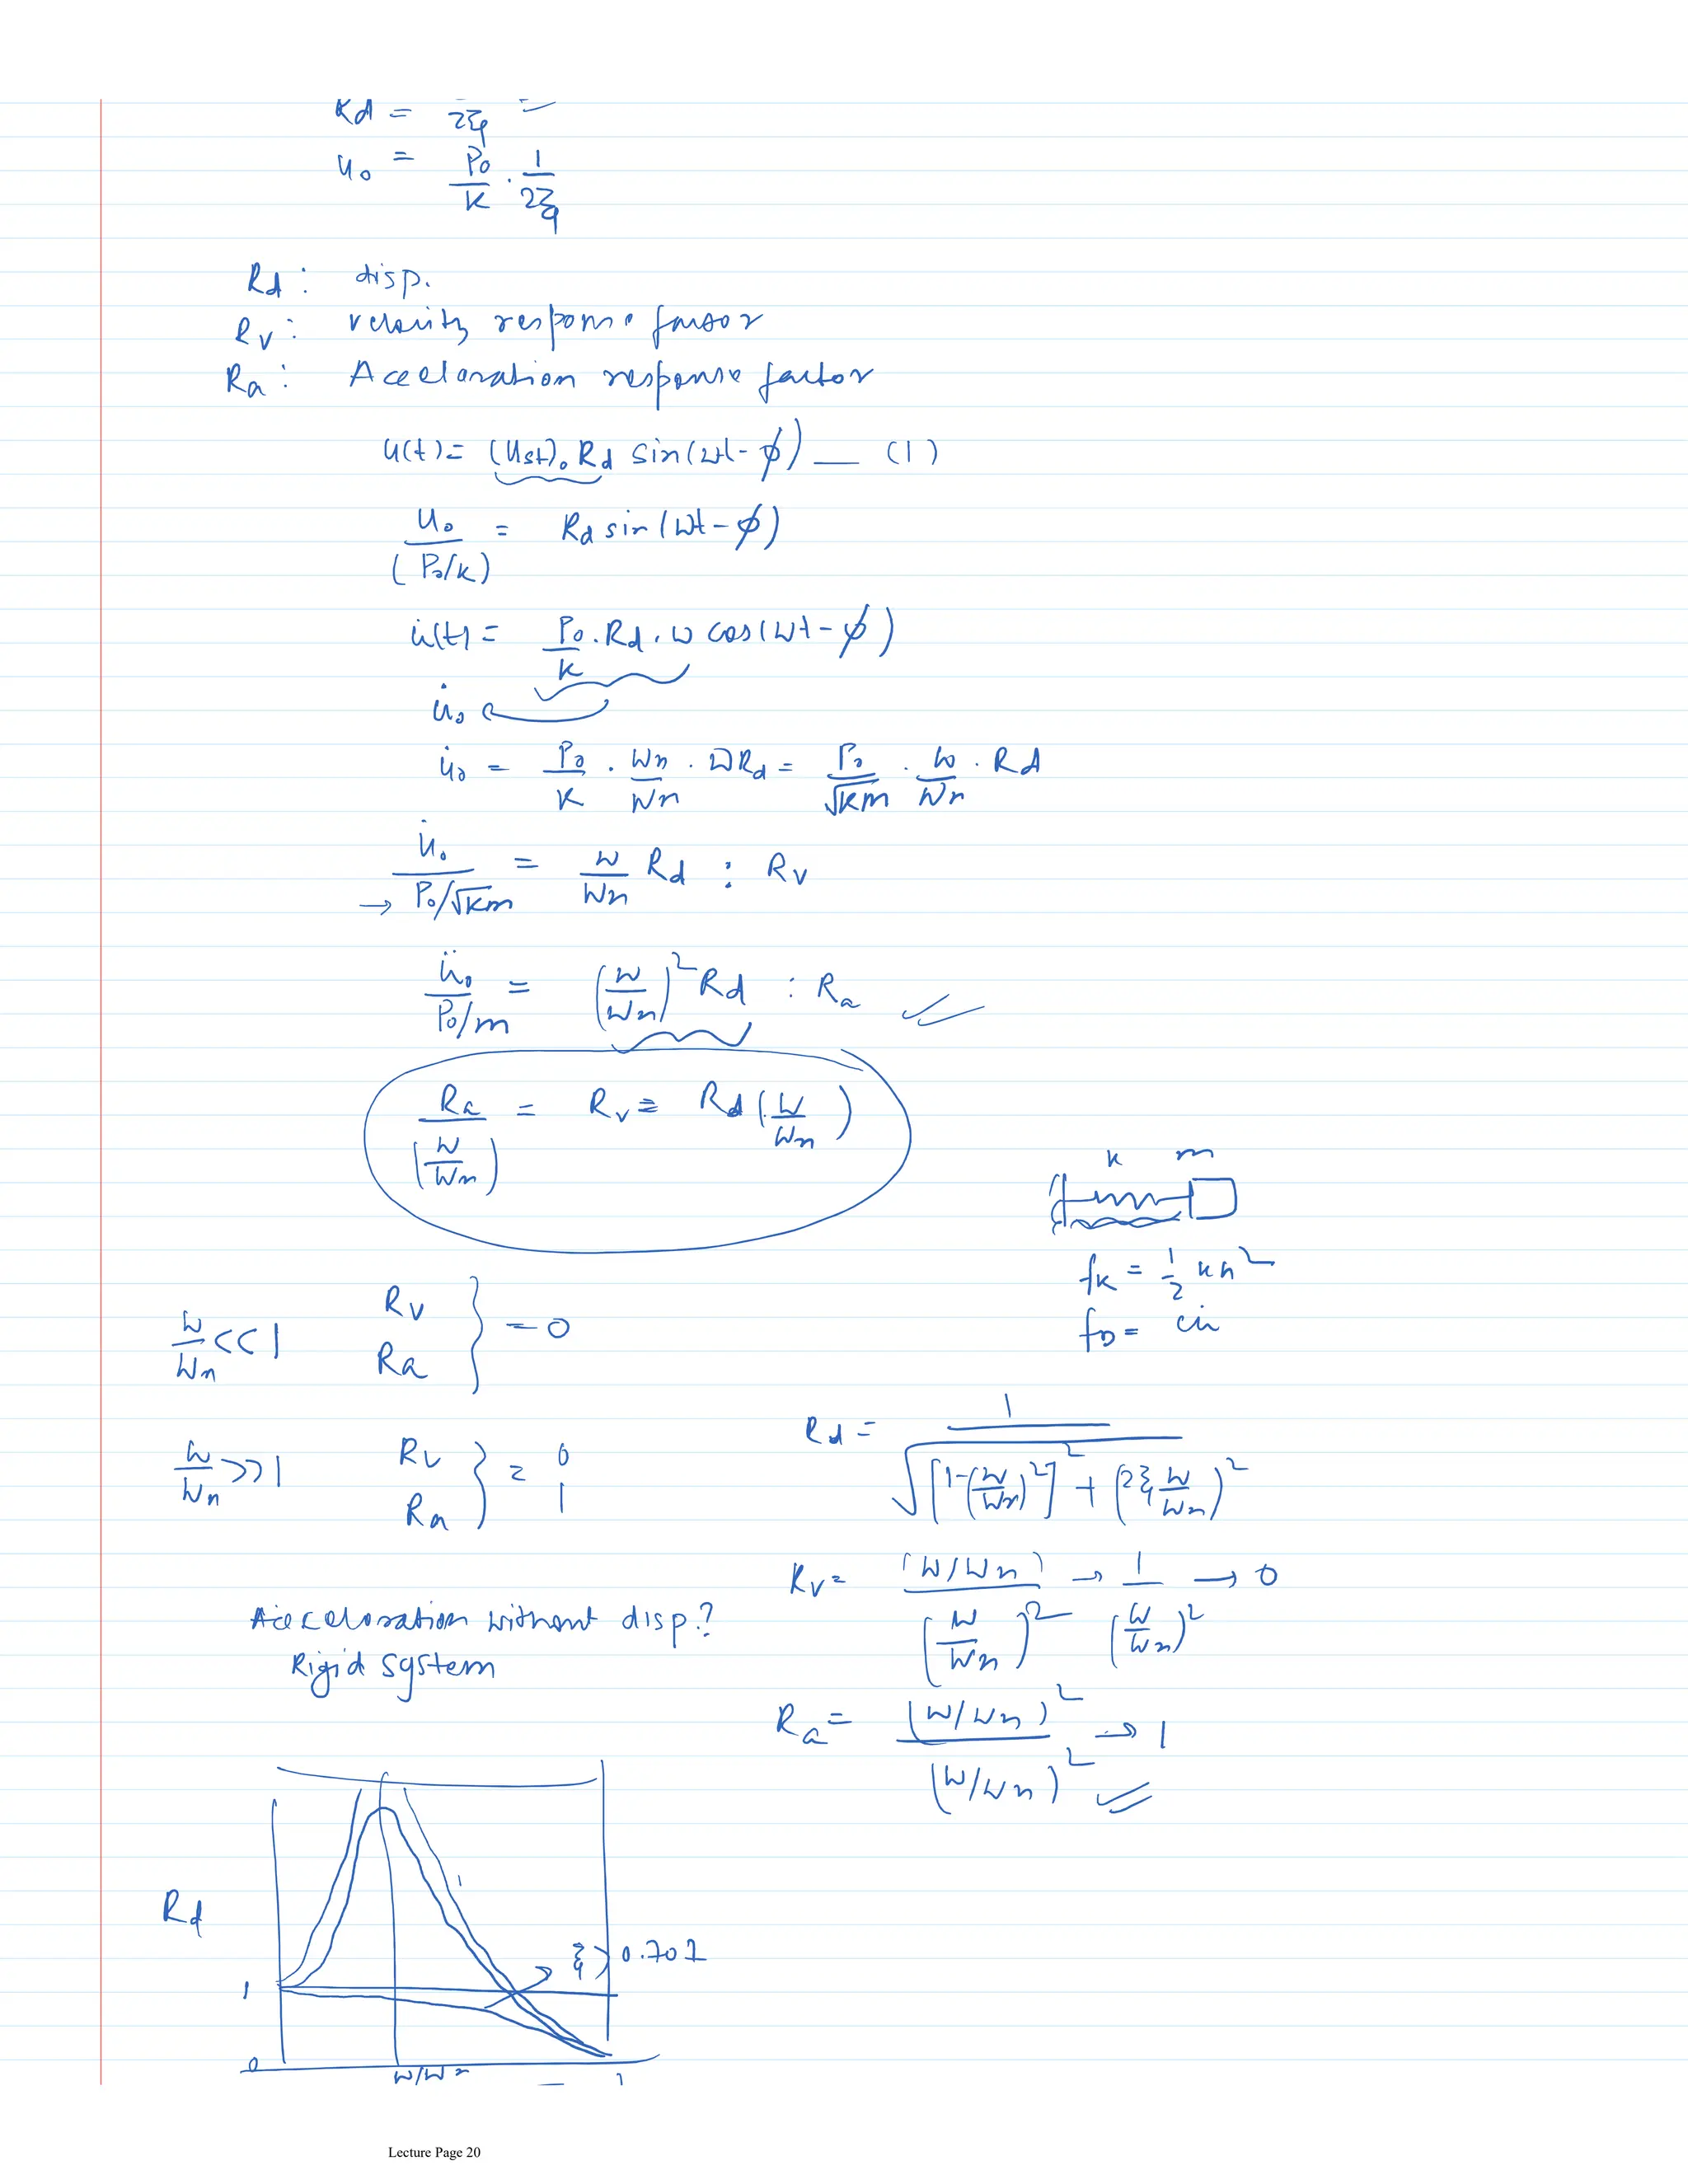 Rd = 1/2ξ
u₀ = P₀/k · 1/2ξ
Rd : disp.
Rv : velocity response factor
Ra : Acceleration response factor
u(t) = (Ust)₀ Rd sin(ωt-ϕ) — (1)
u₀/(P₀/k) = Rd sin(ωt-ϕ)
u̇(t) = P₀/k · Rd · ω cos(ωt-ϕ)
u̇₀
u̇₀ = P₀/k · ωn/ωn · ωRd = P₀/√km · ω/ωn · Rd
→ u̇₀/(P₀/√km) = ω/ωn Rd : Rv
ü₀/(P₀/m) = (ω/ωn)² Rd : Ra
Ra/(ω/ωn) = Rv = Rd (ω/ωn)
k m
fD = cu̇
ω/ωn << 1 Rv Ra } = 0
ω/ωn >> 1 Rv Ra } = 0 1
Rd = 1/√([1-(ω/ωn)²]² + (2ξ ω/ωn)²)
Rv = (ω/ωn)/(ω/ωn)² → 1/(ω/ωn)² → 0
Acceleration without disp.?
Rigid system
Ra = (ω/ωn)²/(ω/ωn)² → 1
Rd
ξ > 0.707
1
0
ω/ωn
Lecture Page 20